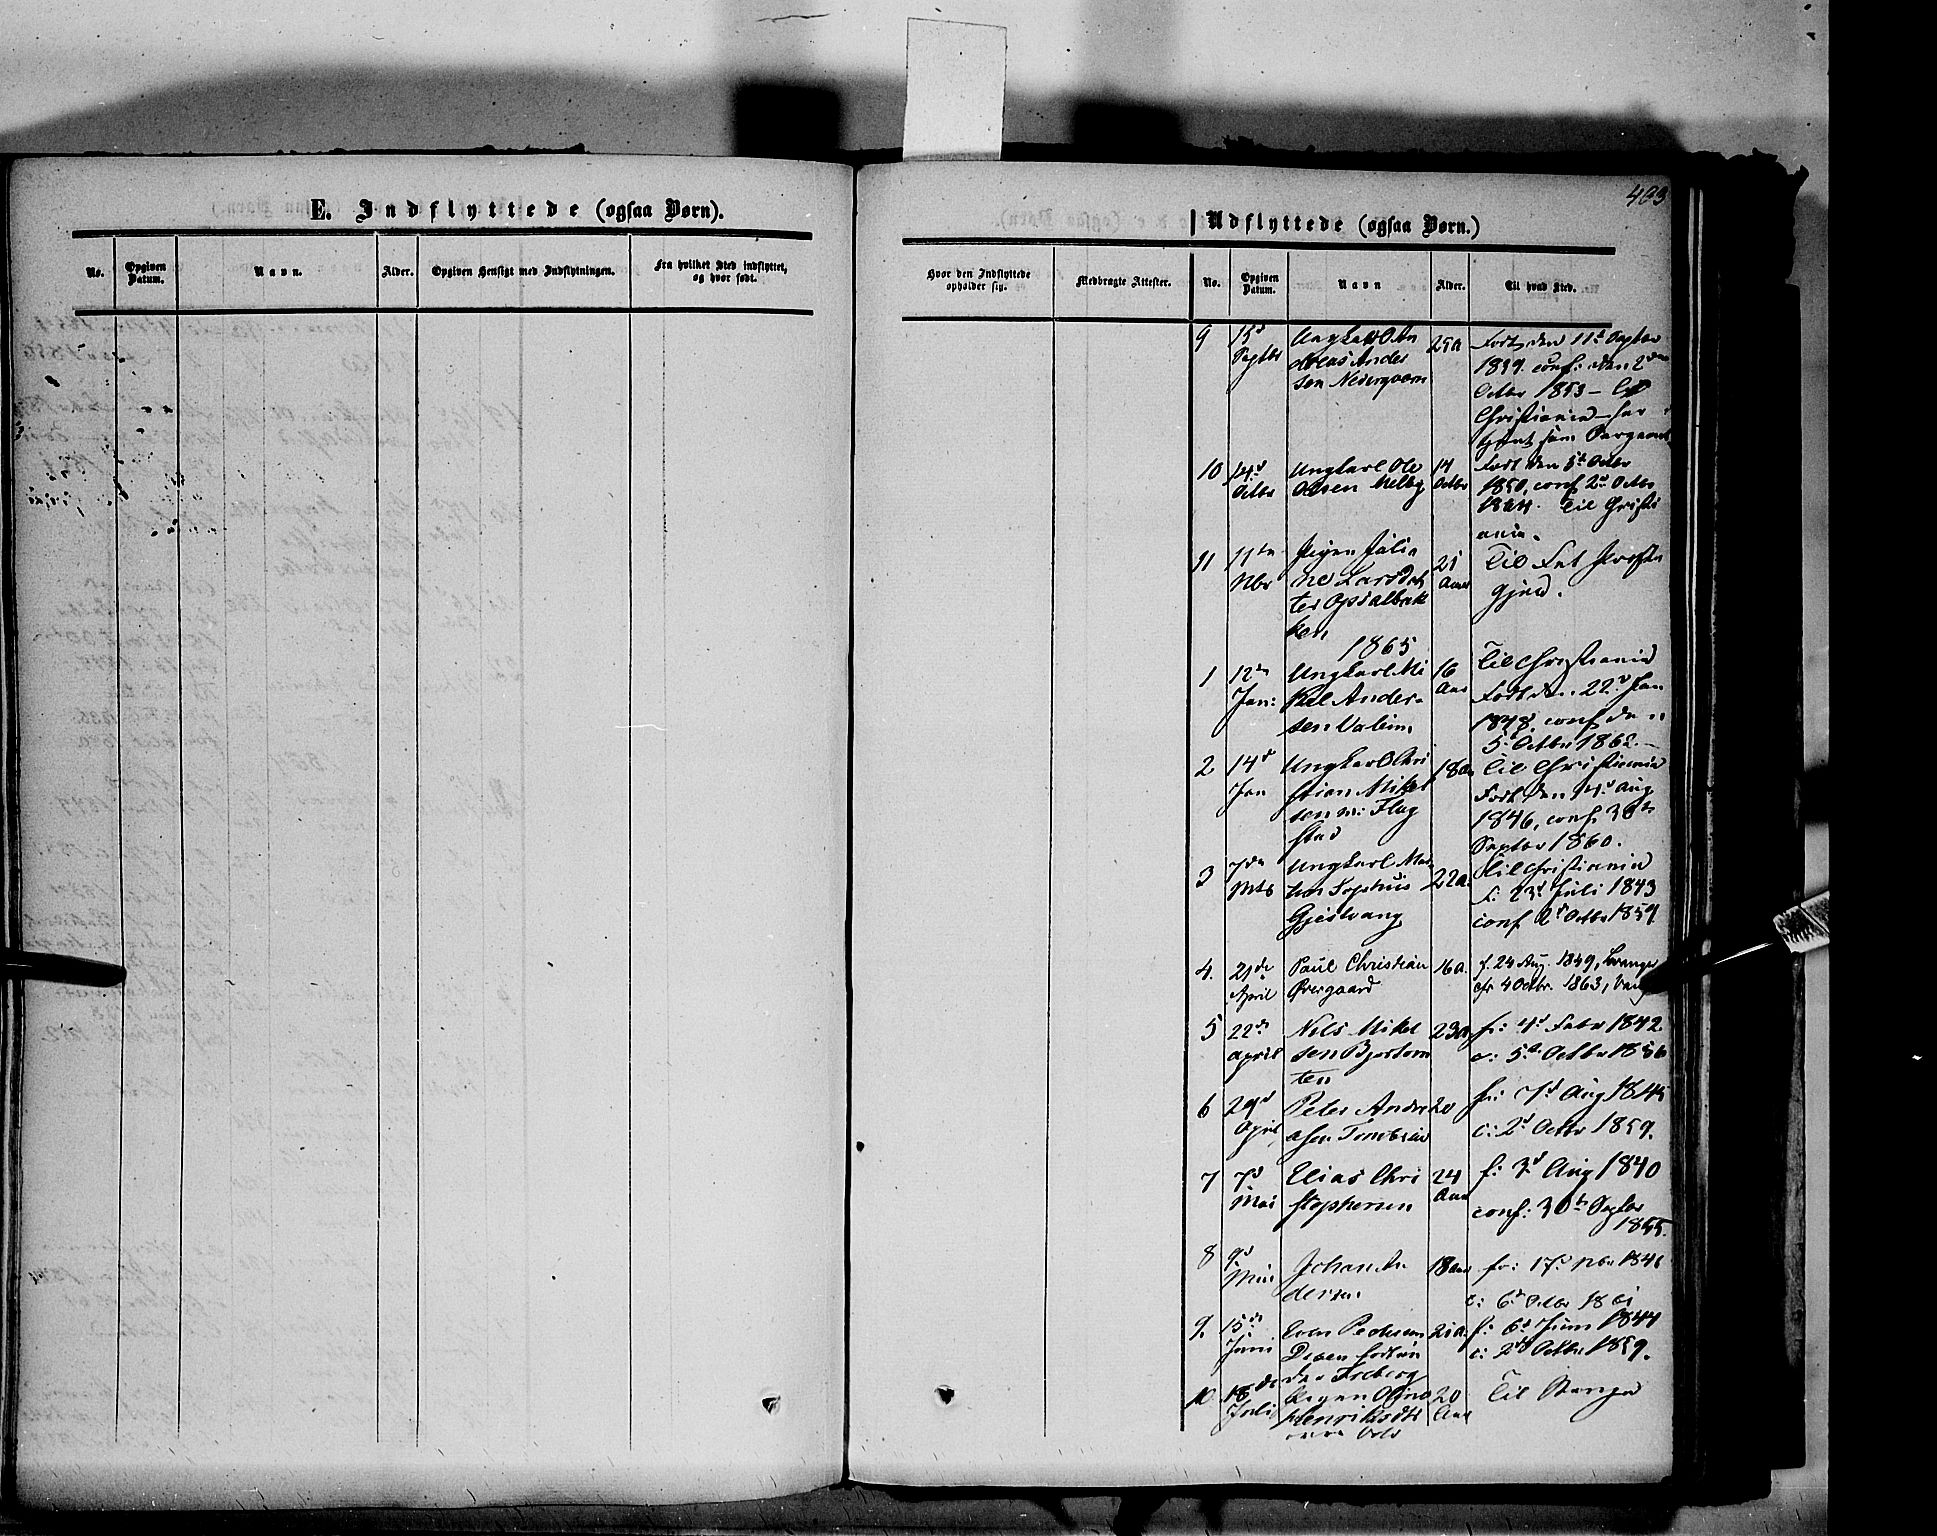 E. Indflyttede (ogsaa Børn).
No.
Opgiven Datum.
Navn.
Alder.
Opgiven Hensigt med Indflytningen.
Fra hvilket Sted indflyttet, og hvor født.
403
Udflyttede (ogsaa Børn.)
Hvor den Indflyttede opholder sig.
Medbragte Attester.
No.
Opgiven Datum.
Navn
Alder.
Til hvad Sted.
9 15d Septbr
Ungkarl An
dreas Ander
sen Nedergaarn
25a
Født den 11te Septbr
1839. conf: den 2den
Octbr 1853 - til
Christiania - har
tjent som
10 14d Octbr
Ungkarl Ole
Olsen Melby
14 Octbr
Født den 5te Octbr
1850, conf 2d Octbr
1864. Til Christi
ania.
11 11te Nbr
Pigen Juli
ne Larsdat
ter Opsalbak
ken
21 Aar
Til Fet Præste
gjeld.
1865
1 12te Jan:
Ungkarl Mi
kel Ander-
sen Valum
16 Aar
Til Christiania
Født den 22d Jan
1848, conf den
5d Octbr 1862.
2 14d Jan
Ungkarl Chri
stian Mikel
sen Flag
stad
18a
Til Christiania
Født den 14d Aug
1846, conf. 30te
Septbr 1860.
3 7de Mts
Ungkarl
Sophus
Gjestvang
22a.
Til Christiania
f: 23d Juli 1843
conf 2d Octbr 1859
4. 21de April
Paul Christian
Øvergaard
16a.
f. 24 Aug. 1849,
cfr 4 Octbr. 1863,
5 22de April
Nils Mikel
sen
ten
23a
f: 4d Febr 1842.
c: 5te Octbr 1856
6 29d April
Peter Andre
asen
20
f: 7d Aug 1845
c: 2d Octbr 1859.
7 7d Mai
Elias Chri
stophersen
24 Aar
f: 3d Aug 1840
conf: 30te Septbr
1855.
8 9d Mai
Johan An
dersen
18 Aar
f: 17d Nbr 1846
c: 6d Octbr 1861
9. 15de Juni
Even Pedersen
21a.
f: 6d Juni 1844
c: 2d Octbr 1859.
10 18de Juli
Pigen
Henriksdtr
20 Aar
Til Stange